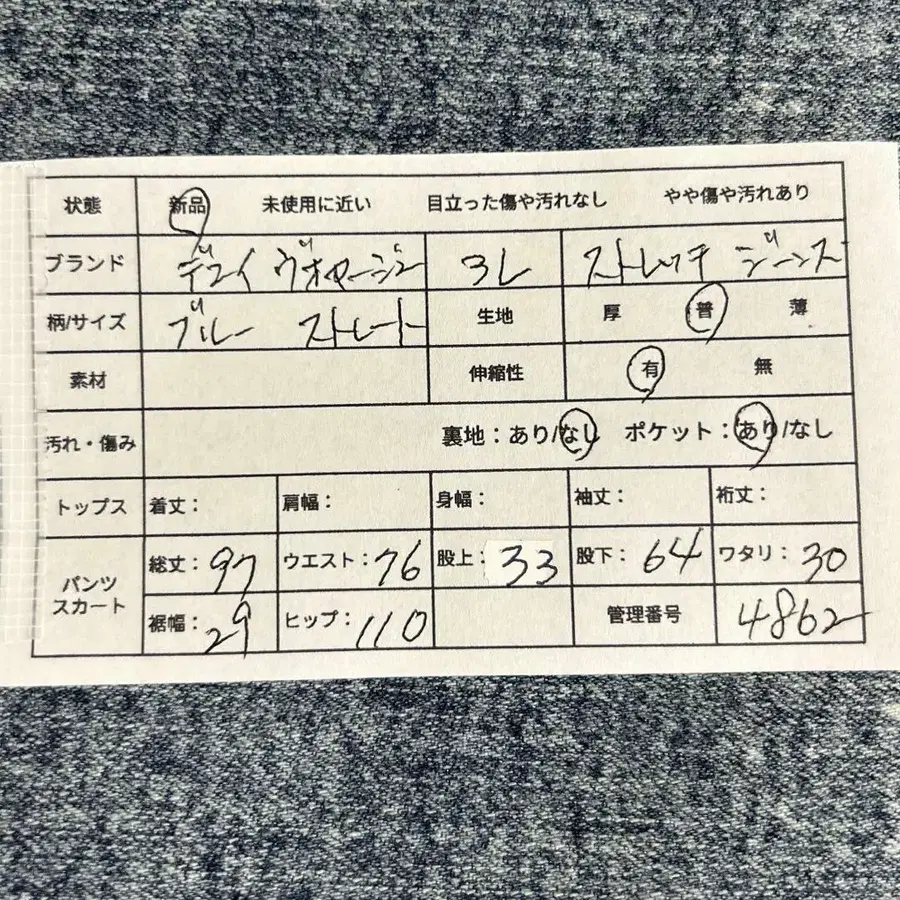 状態 新品 未使用に近い 目立った傷や汚れなし やや傷や汚れあり
ブランド デイ ヴォヤージュ 3L ストレッチ ジーンズ
柄/サイズ ブルー ストレート 生地 厚 普 薄
素材 伸縮性 有 無
汚れ・傷み 裏地:あり/なし ポケット:あり/なし
トップス 着丈: 肩幅: 身幅: 袖丈: 裄丈:
パンツ スカート 総丈:97 ウエスト:76 股上:33 股下:64 ワタリ:30
裾幅:29 ヒップ:110 管理番号 4862